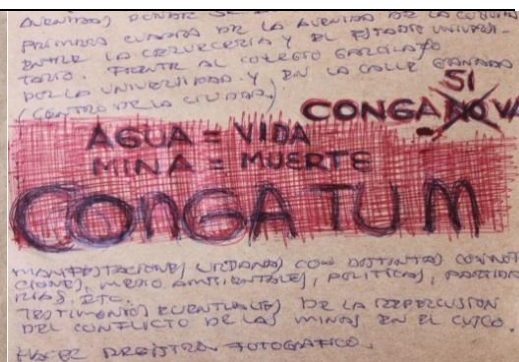 AVENIDA) DONDE SE
PRIMERA CUADRA DE LA AVENIDA DE LA CULTURA
ENTRE LA CERVECERIA Y EL ESTADIO UNIVERSI-
TARIO. FRENTE AL COLEGIO GARCILASO
POR LA UNIVERSIDAD. Y EN LA CALLE GRANADA
(CENTRO DE LA CIUDAD)
SI
CONGA NO VA
AGUA = VIDA
MINA = MUERTE
CONGATUM
MANIFESTACIONES URBANAS CON DISTINTAS CONNOTA
CIONES, MEDIO AMBIENTALES, POLITICAS, PARTIDA
RIAS, ETC.
TESTIMONIOS EVENTUALES DE LA REPERCUSION
DEL CONFLICTO DE LAS MINAS EN EL CUZCO.
HACER REGISTRO FOTOGRAFICO.